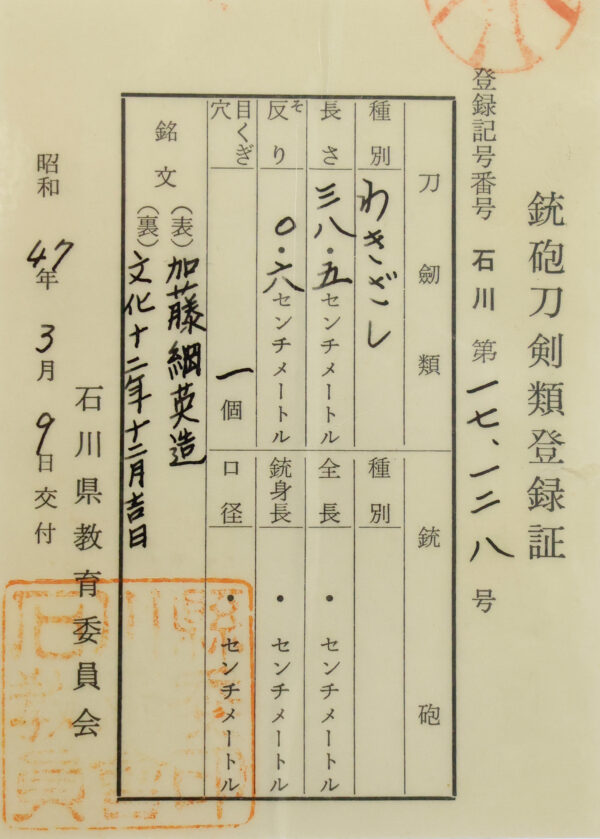 銃砲刀剣類登録証
登録記号番号 石川 第一七、一二八号
刀劒類
種別 わきざし
長さ 三八・五センチメートル
反り 〇・六センチメートル
そ
目くぎ穴 一個
銃砲
種別
全長 ・ センチメートル
銃身長 ・ センチメートル
口径 ・ センチメートル
銘文 (表) 加藤綱英造
(裏) 文化十二年十二月吉日
昭和47年3月9日交付
石川県教育委員会